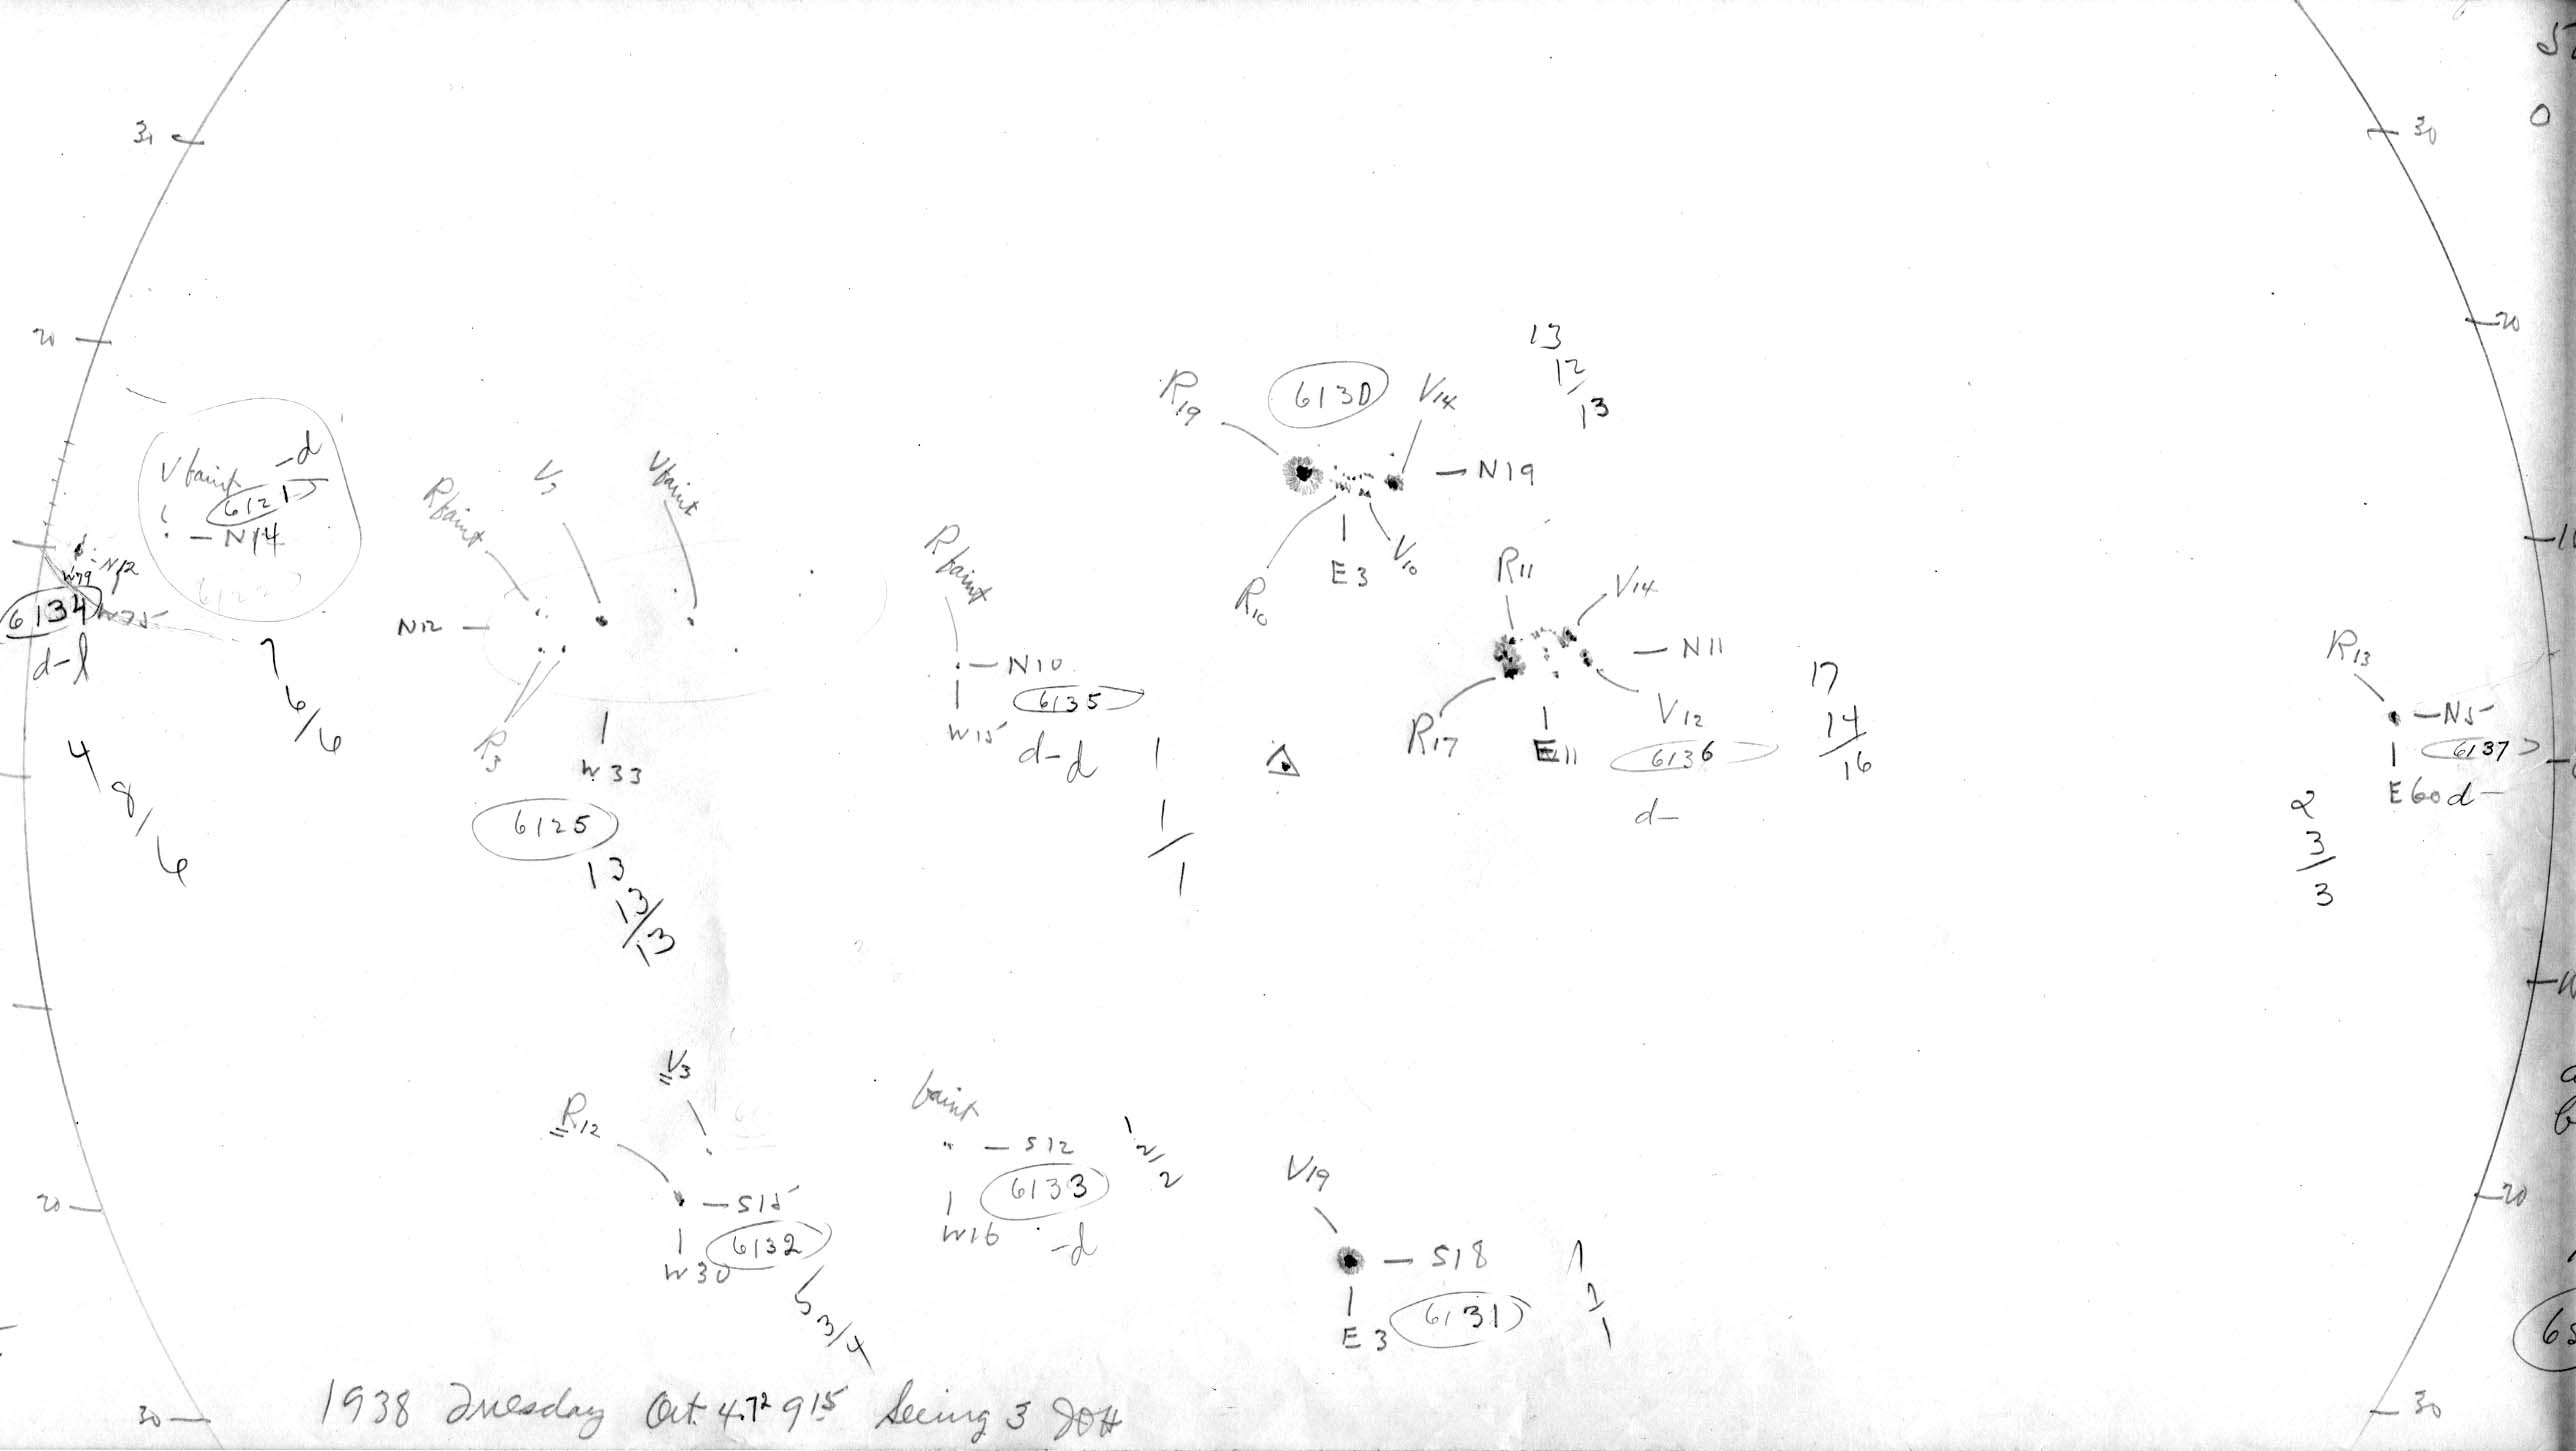 30
30
0
20
20
13
12/
13
R19
6130
V14
-N19
R10
E3
V10
V faint -d
6127
- N14
-N12
W79
6134
W75
d-l
7
6/6
4
8/
6
R faint
V3
V faint
N12 -
R3
W33
6125
13
13/
13
R faint
- N10
6135
W15
d-d
1
1
/
1
R11
V14
- N11
R17
V12
E11
6136
d-
17
14
/
16
R13
- N5
6137
E60 d-
2
3
/
3
V3
R12
- S15
6132
W30
5
3/4
faint
- S12
6133
W16
-d
1
2/2
V19
- S18
6131
E3
1
1
/
1
20
20
30
30
1938 Tuesday Oct. 4.72 9 15 Seeing 3 JOH